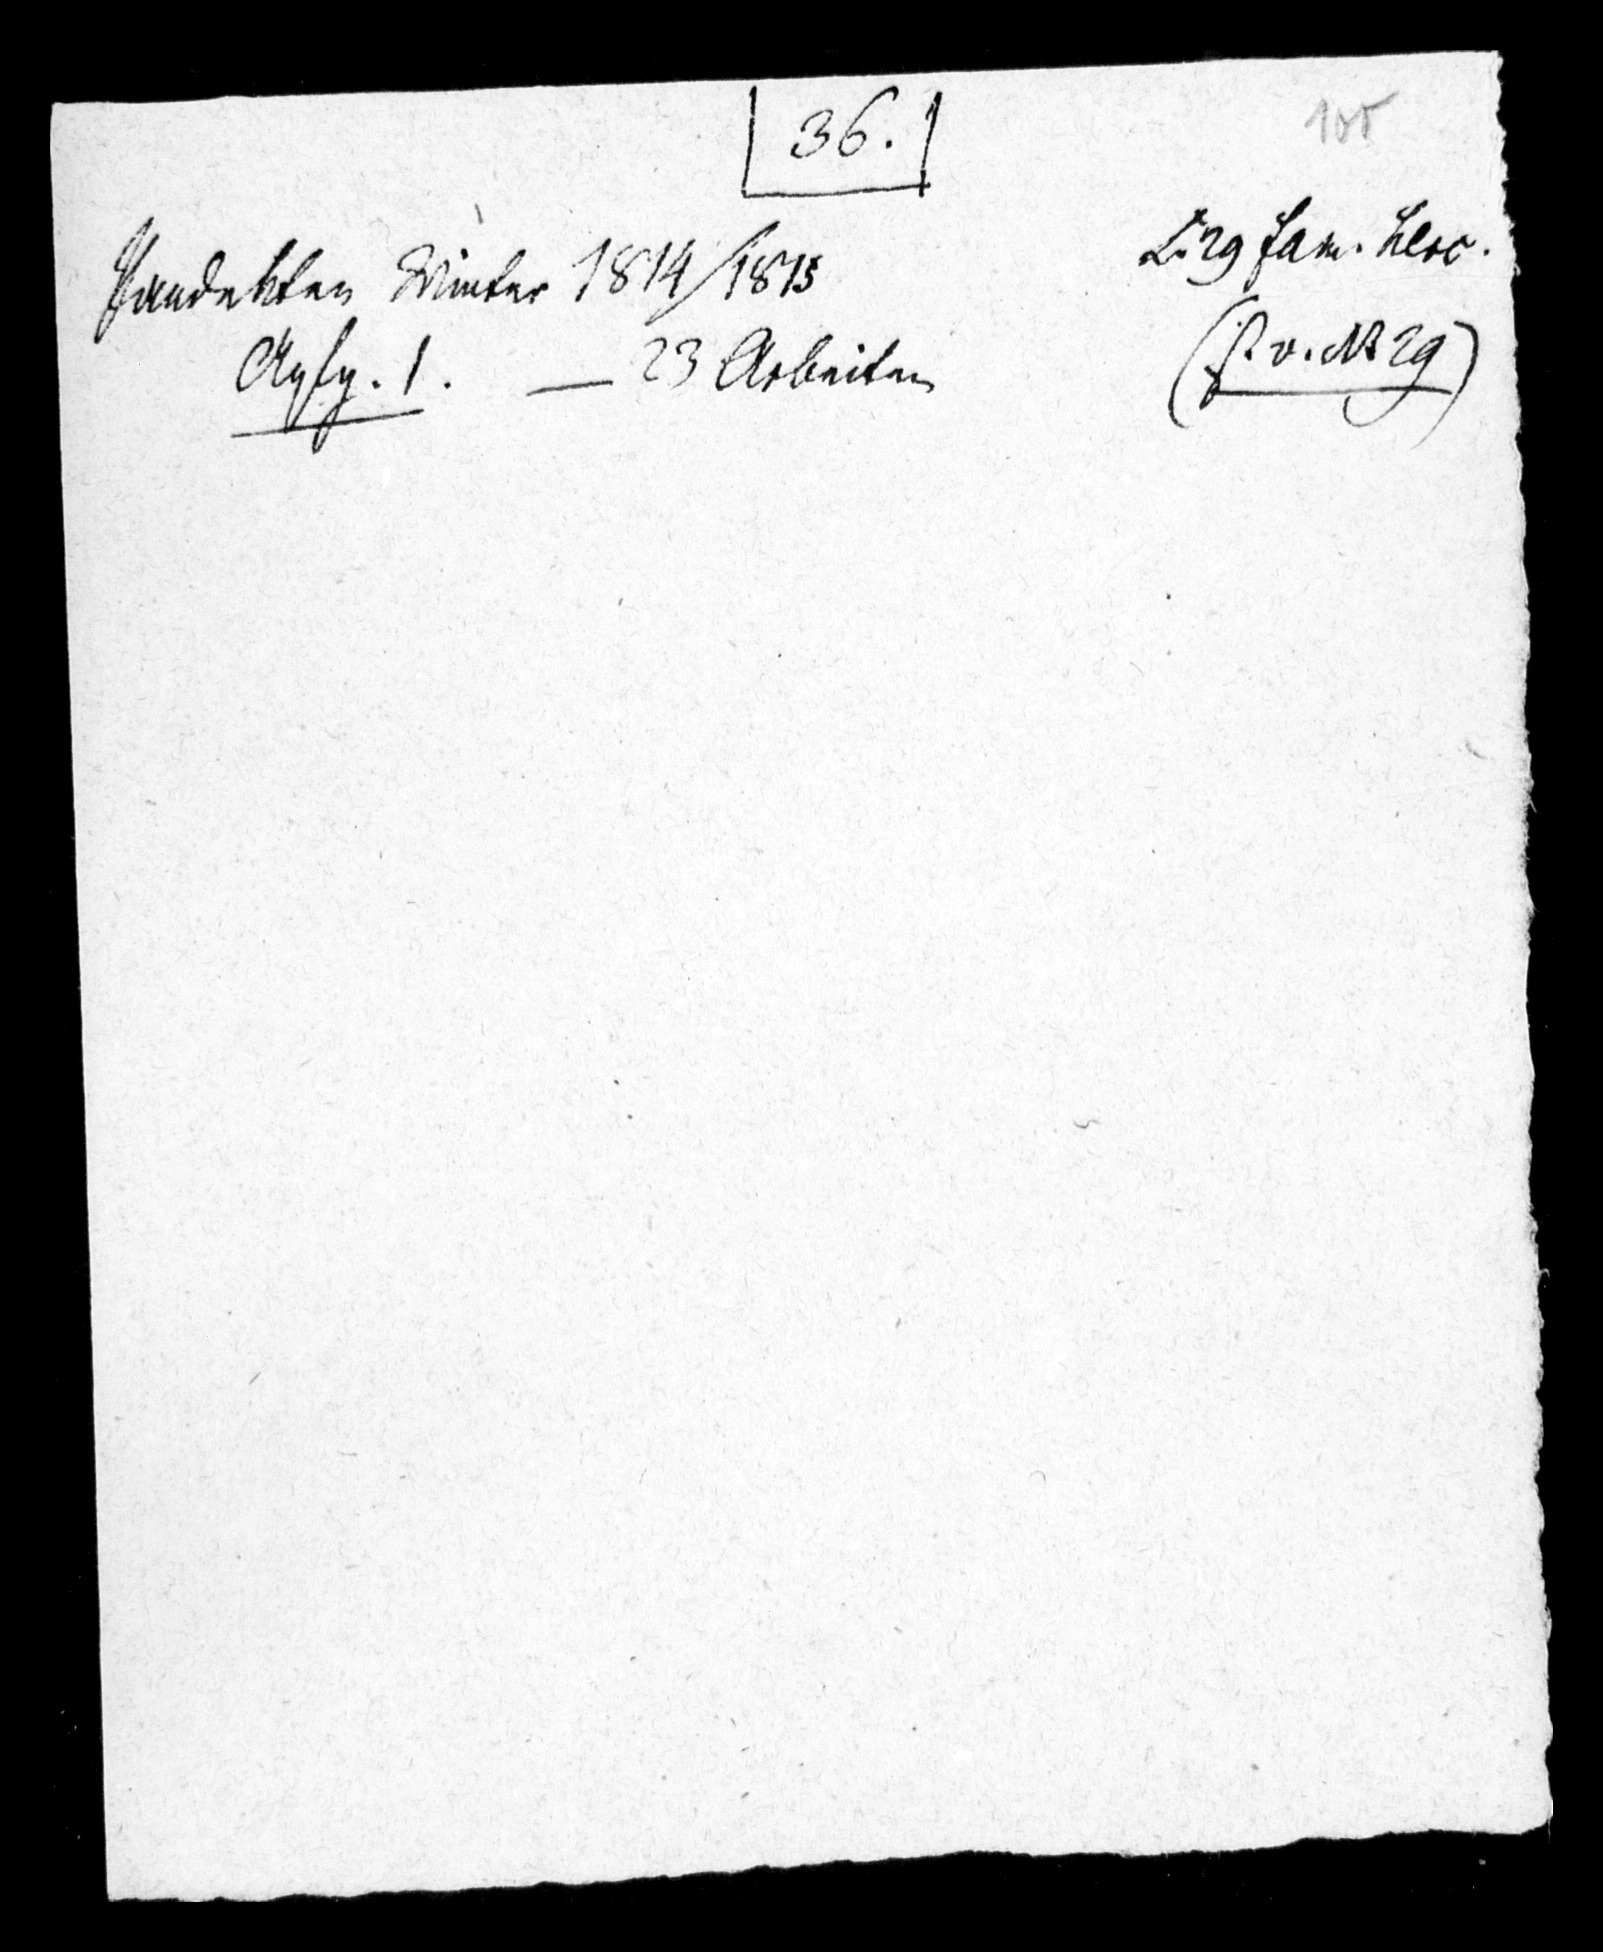 36.
105
Pandekten Winter 1814/1815
L. 29 fam. herc.
Aufg. 1. — 23 Arbeiten
(f. v. № 29)